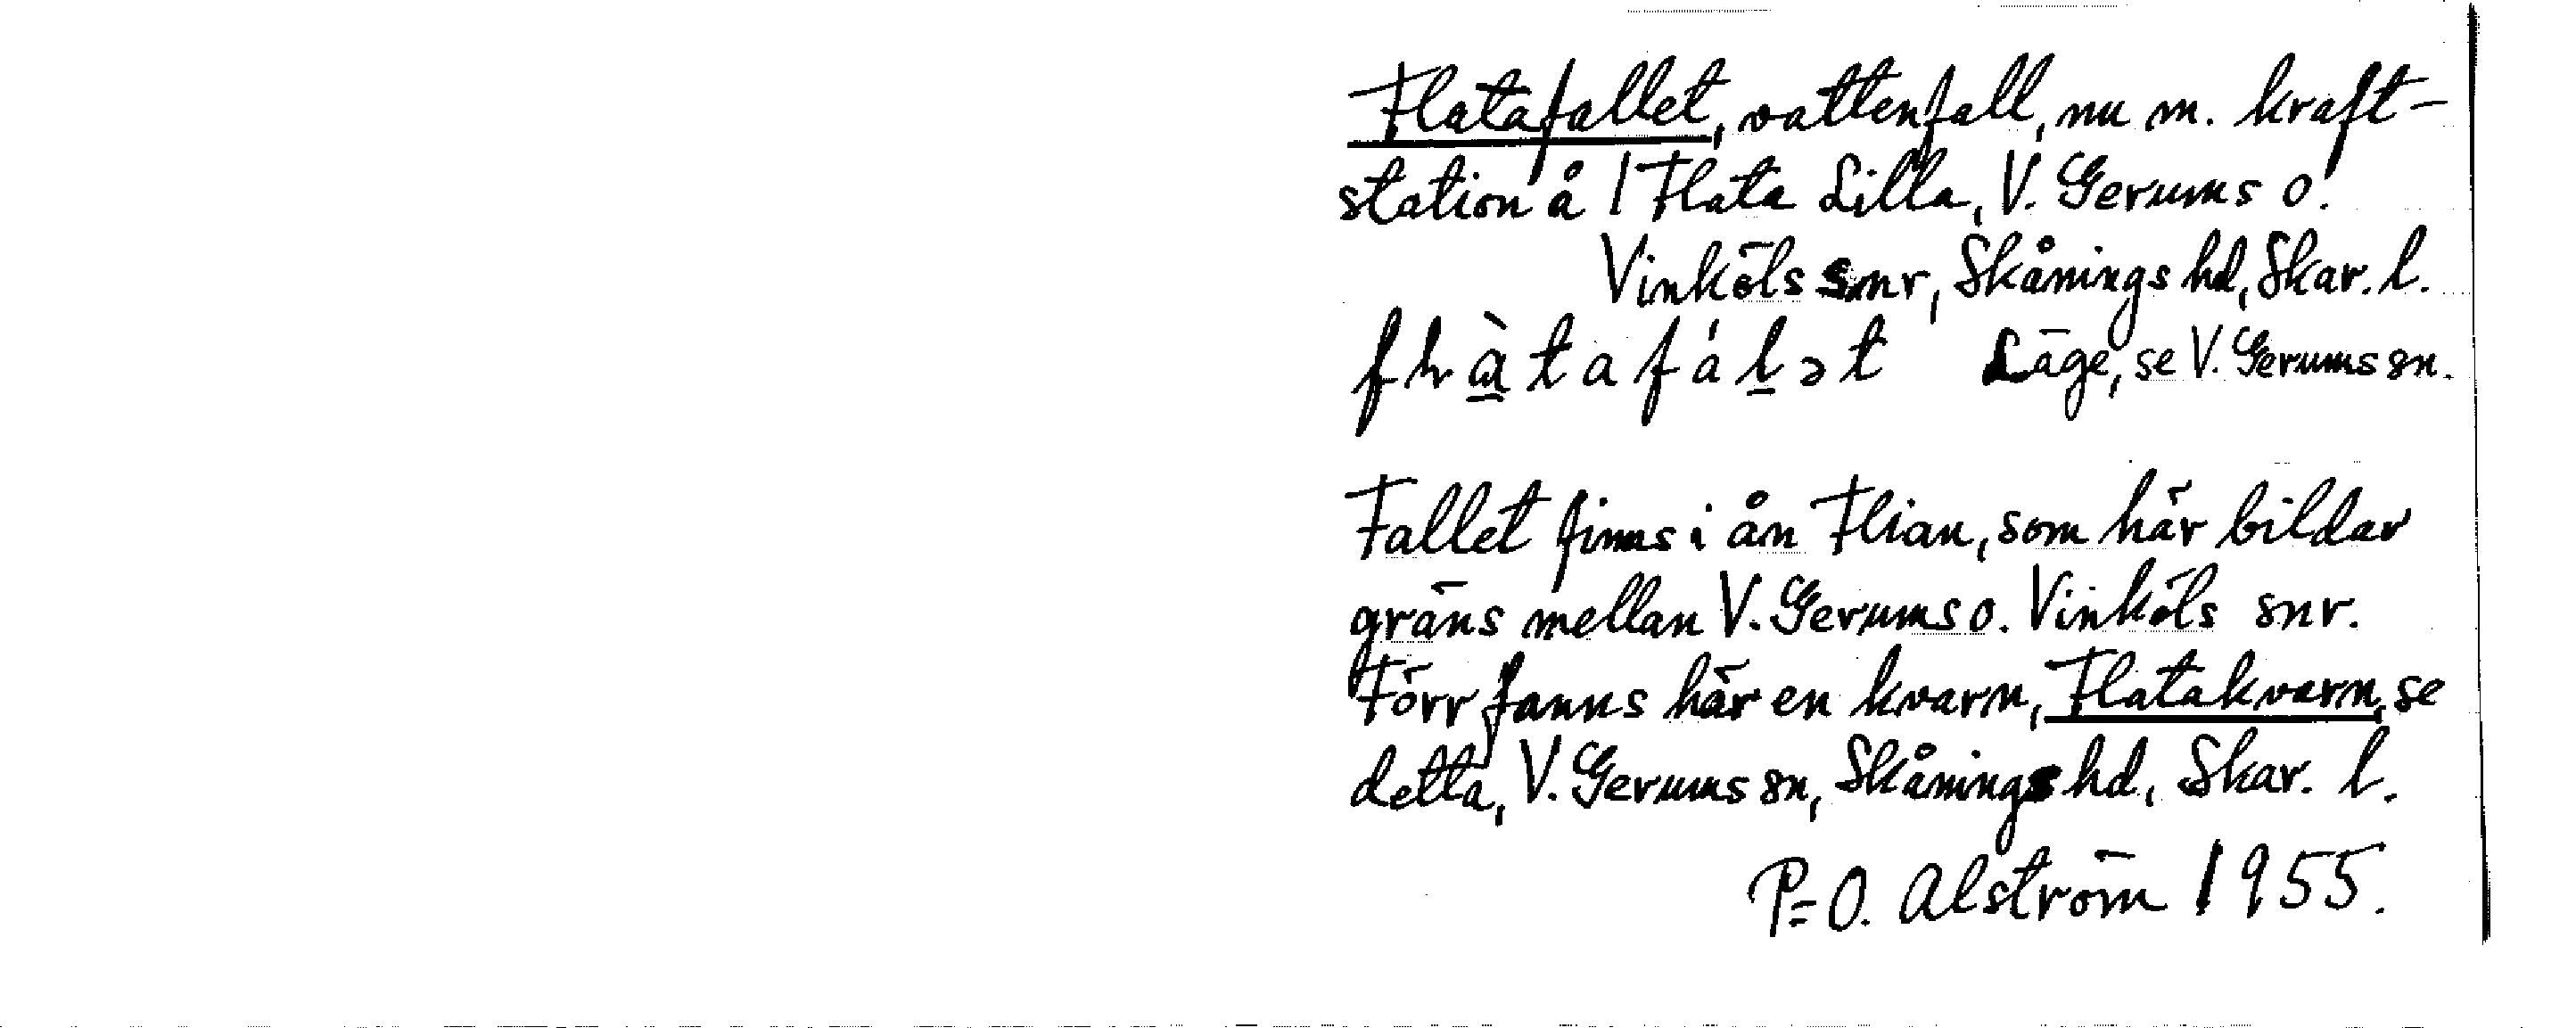 Flatafallet, vattenfall, nu m. kraft-
station å 1 Flata Lilla, V. Gerums o.
Vinköls snr, Skånings hd, Skar. l.
Läge, se V. Gerums sn.
Fallet finns i ån Flian, som här bildar
gräns mellan V. Gerums o. Vinköls snr.
Förr fanns här en kvarn, Flatakvarn, se
detta, V. Gerums sn, Skånings hd, Skar. l.
P=O. Alström 1955.